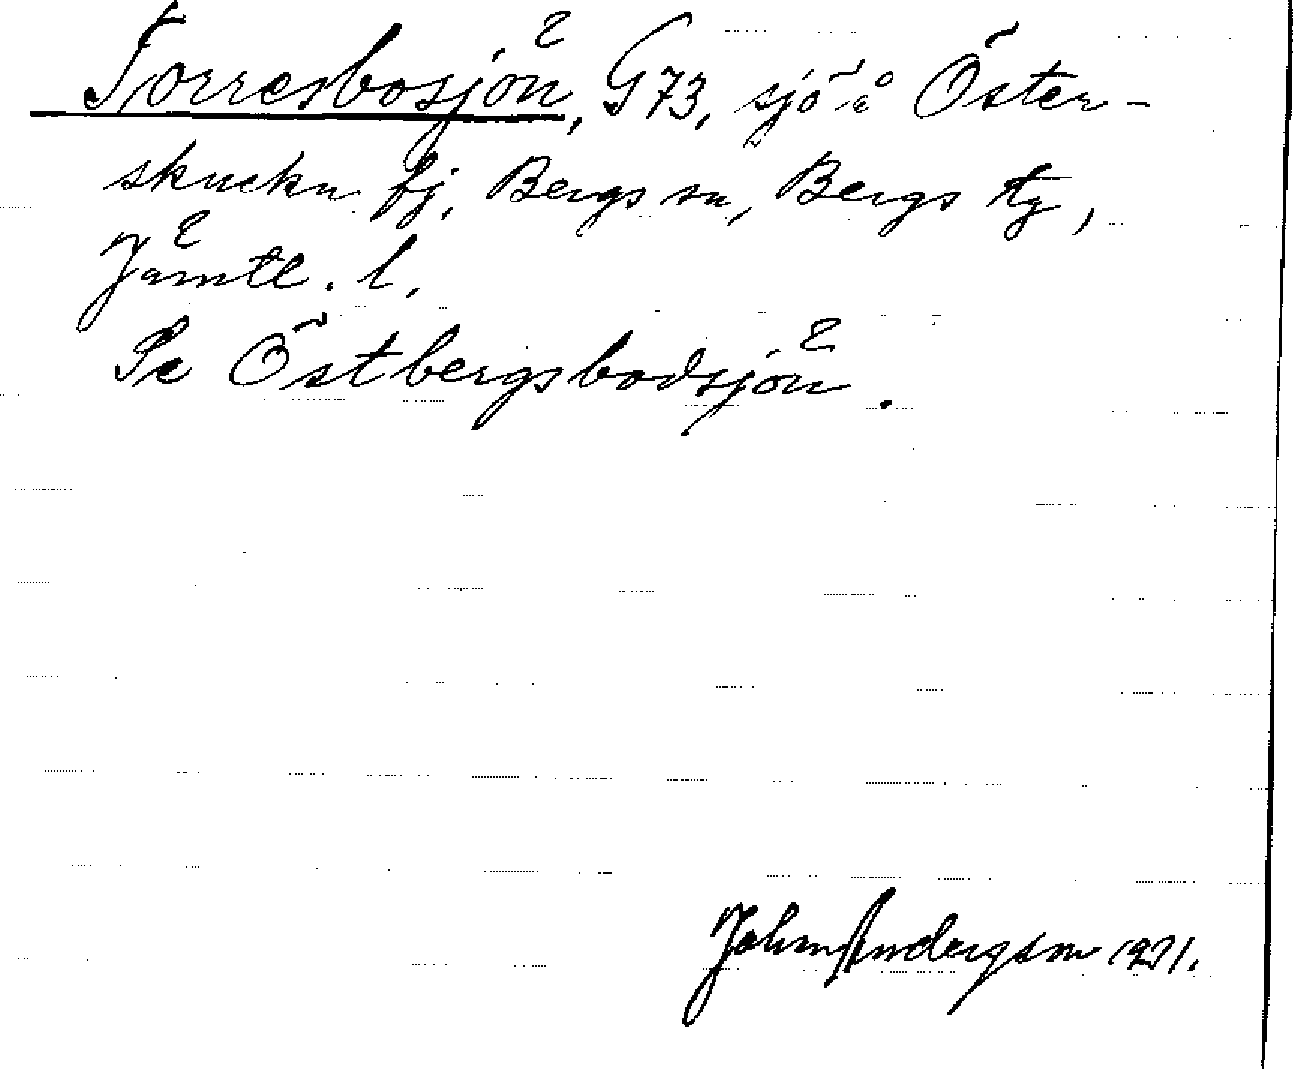 Torresbosjön, G73, sjö å Öster-
skucku by, Bergs sn, Bergs tg,
Jämtl. l.
Se Östbergsbodsjön.
John Andersson 1971.